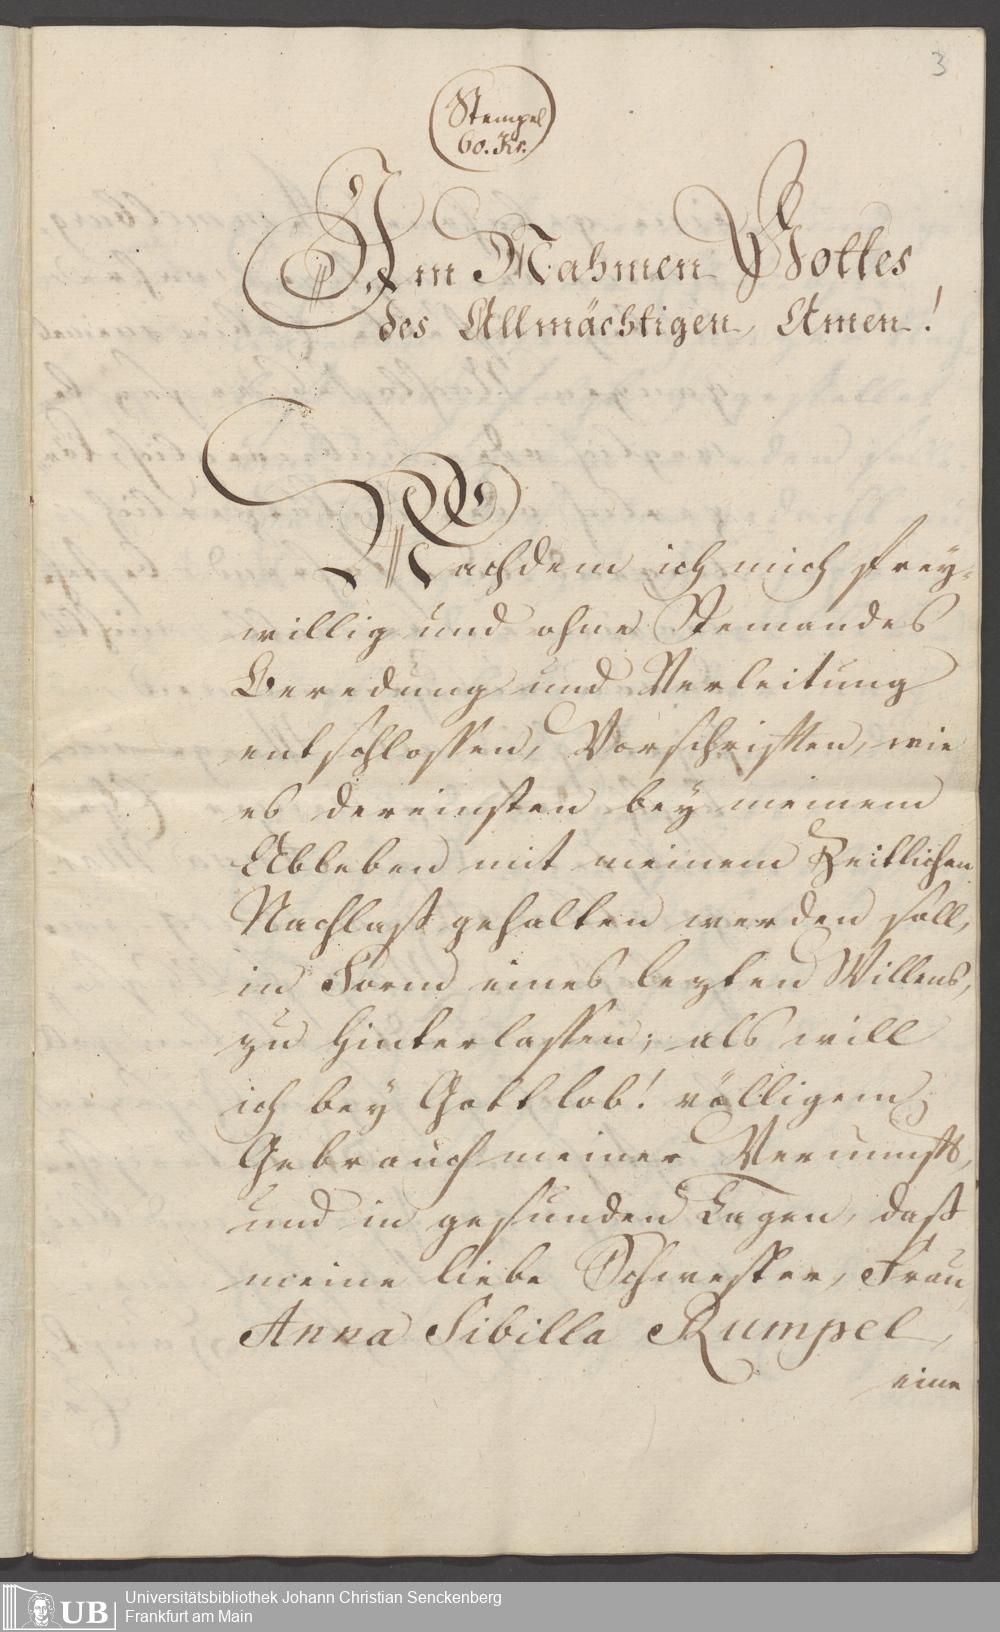 3
Stempel
60. Kr.
Im Nahmen Gottes
des Allmächtigen, Amen!
Nachdem ich mich frey-
willig und ohne Jemandes
Beredung und Verleitung
entschlossen, Vorschriften, wie
es dereinsten bey meinem
Ableben mit meinem Zeitlichen
Nachlaß gehalten werden soll,
in Form eines lezten Willens,
zu hinterlassen; als will
ich bey Gott lob! völligem
Gebrauch meiner Vernunft,
und in gesunden Tagen, daß
meine liebe Schwester, Frau
Anna Sibilla Rumpel,
eine
UB
Universitätsbibliothek Johann Christian Senckenberg
Frankfurt am Main